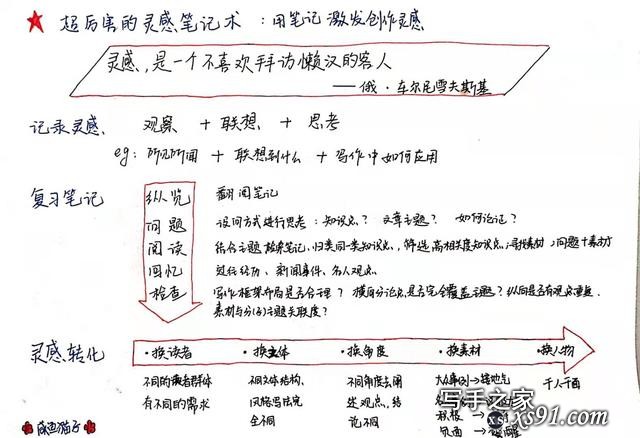 超厉害的灵感笔记术：用笔记激发创作灵感
灵感，是一个不喜欢拜访懒汉的客人
——俄·车尔尼雪夫斯基
记录灵感 观察 + 联想 + 思考
eg: 所见所闻 + 联想到什么 + 写作中如何应用
复习笔记 纵览 翻阅笔记
问题 设问方式进行思考：知识点？ 文章主题？ 如何论证？
阅读 结合主题 笔记，归类同一类知识点，筛选高相关度知识点；寻找素材；问题+素材
回忆 过往经历、新闻事件、名人观点
检查 写作框架布局是否合理？ 横向分论点是否完全覆盖主题？纵向是否有观点重复
素材与分(子)主题关联度？
灵感转化 ·换读者 ·换文体 ·换角度 ·换素材 ·换人物
不同的读者群体 不同文体结构、 不同角度去阐 大众 → 接地气 千人千面
有不同的需求 风格写法完 述观点，结
全不同 论不同 积极 →
负面 →
咸鱼猫子
写手之家
xs91.com